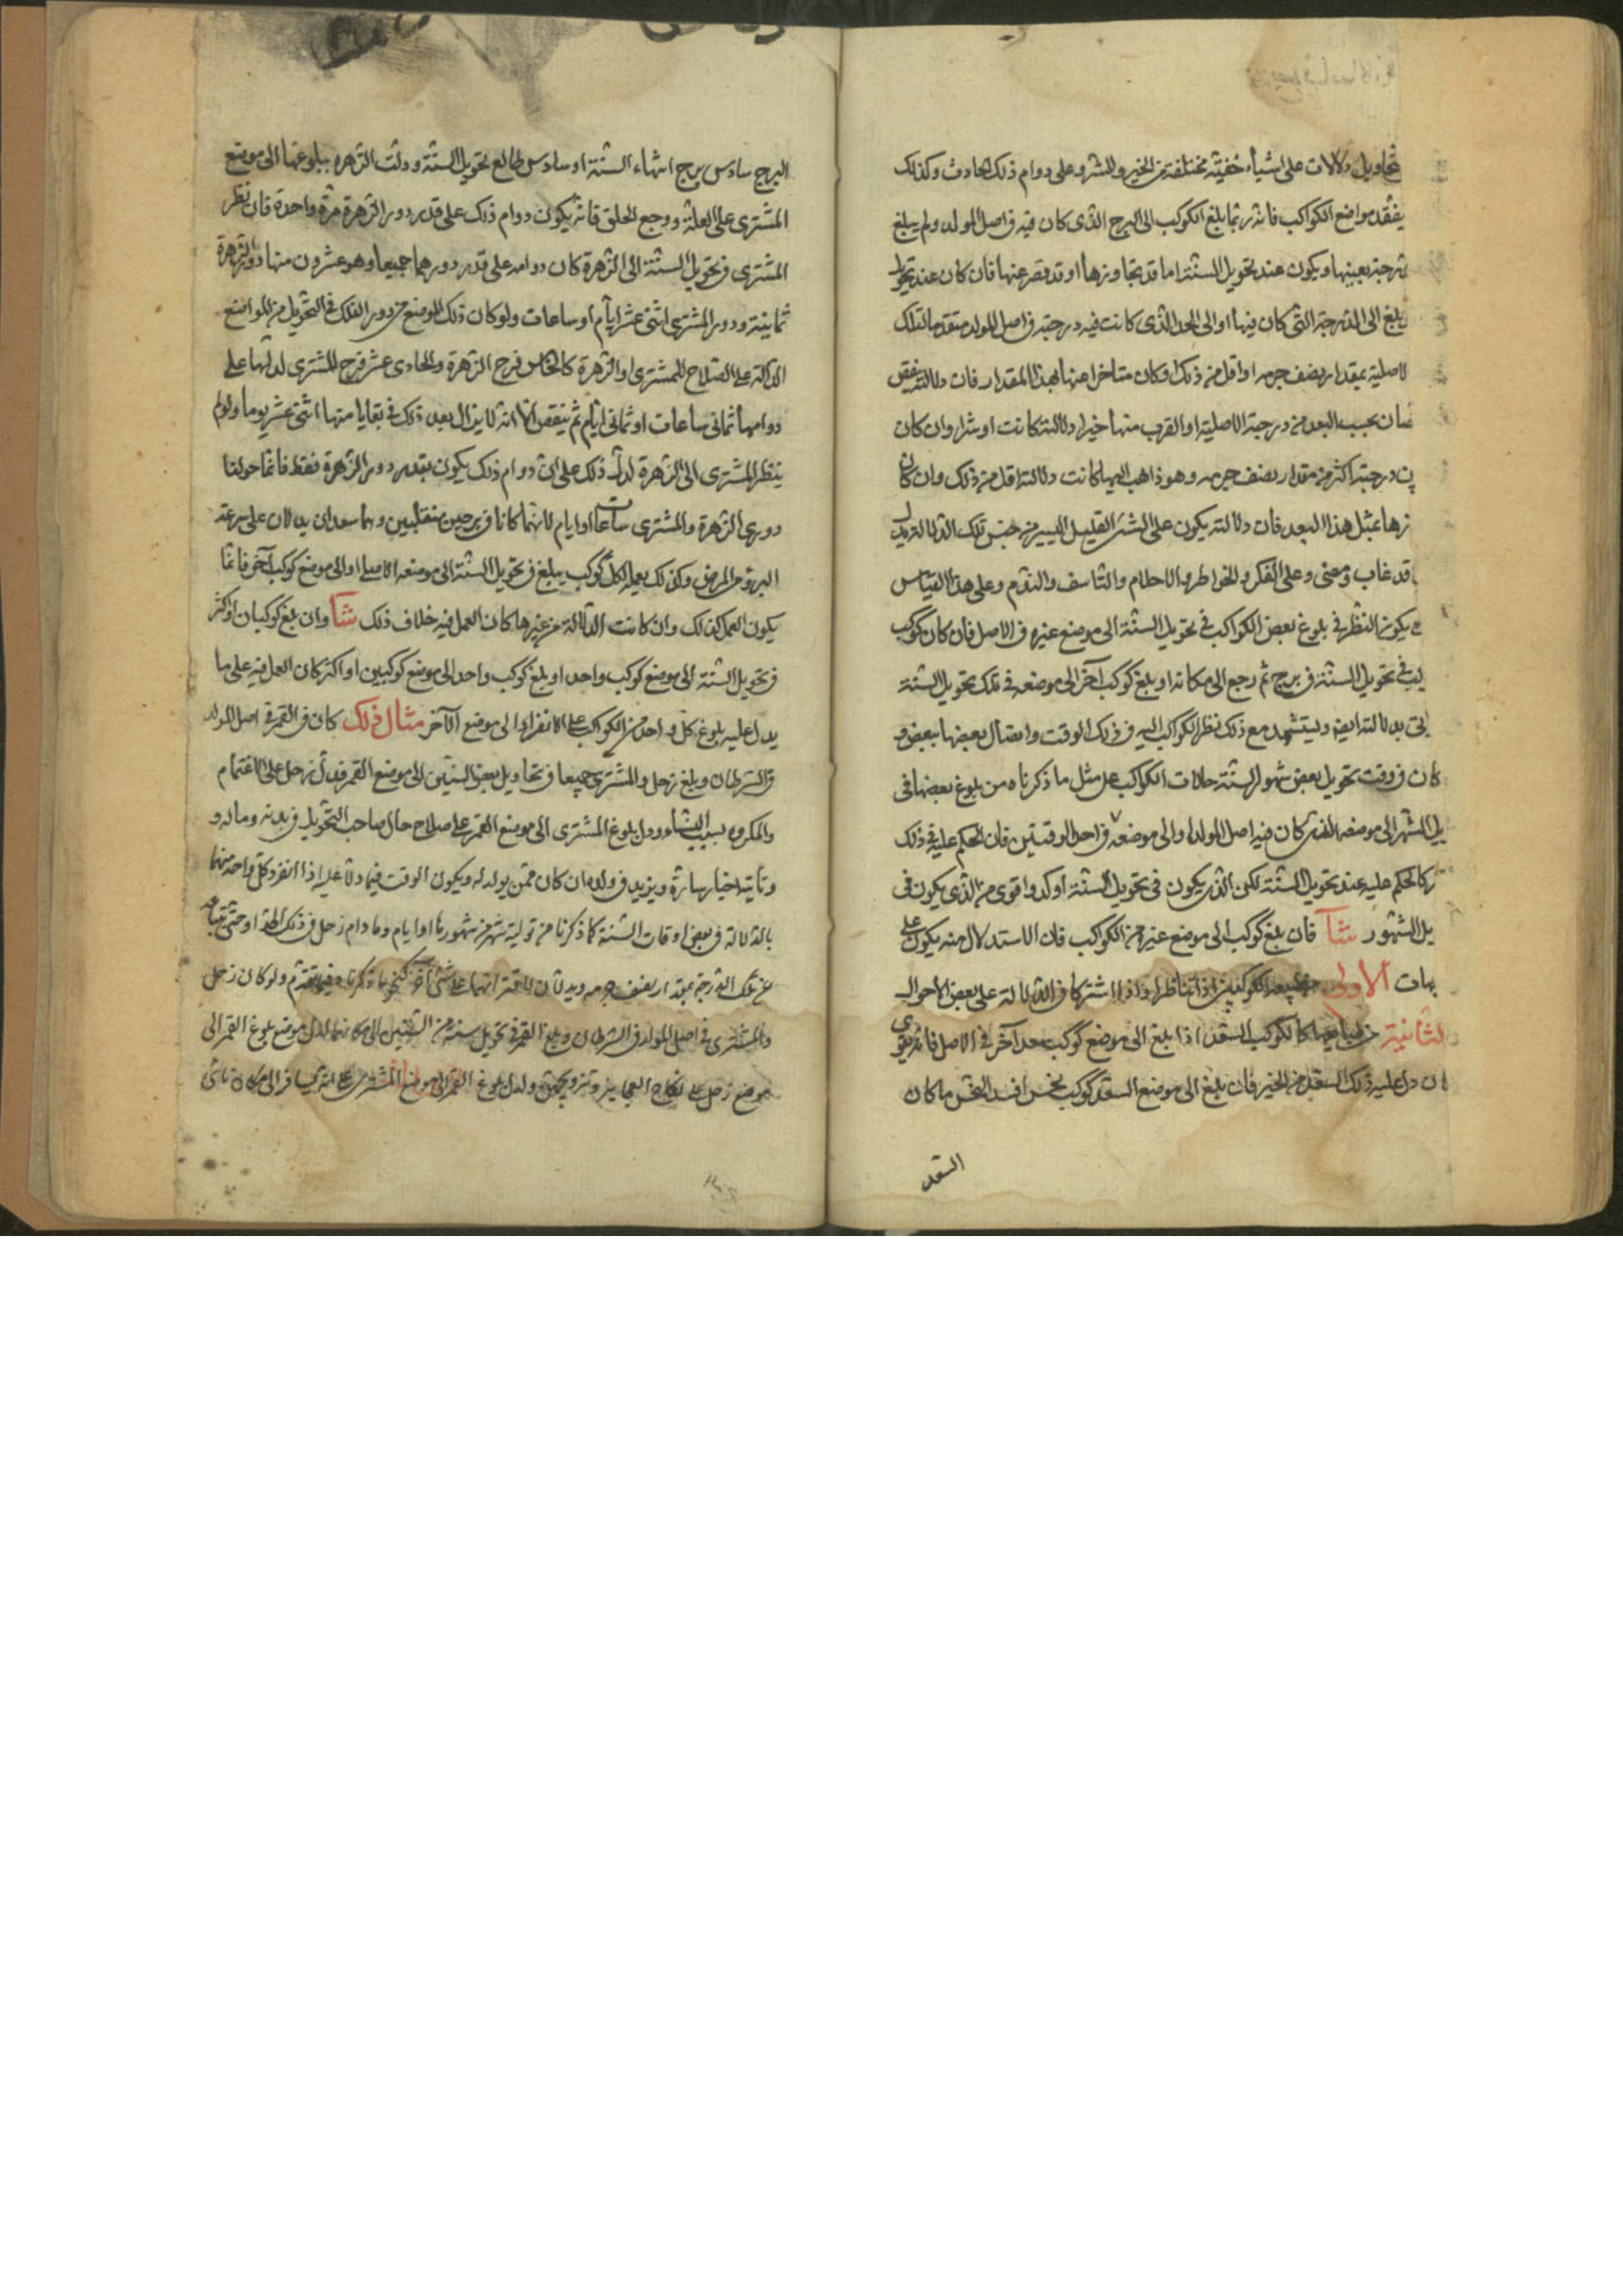 تحاويل دلالات على اشياء خفيّة مختلفة من الخير والشر وعلى دوام ذلك الحادث وكذلك
يفقد مواضع الكواكب فانه ربّما بلغ الكوكب الى البرج الذى كان فيه فى اصل المولد ولم يبلغ
درجته بعينها ويكون عند تحويل السنة اما قد تجاوزها او قد قصر عنها فان كان عند تحويل
يبلغ الى الدرجة التى كان فيها او الى الحد الذى كانت فيه درجته فى اصل المولد متقدما لتلك
لاصلية بمقدار نصف جرمه او اقل من ذلك او كان متاخرا عنها بهذا المقدار فان دلالته ينقص
بحسب البعد من درجته الاصلية او القرب منها خيرا دلالته كانت او شرا وان كان
درجته اكثر من مقدار نصف جرمه وهو ذاهب اليها كانت دلالته اقل من ذلك وان كان
بمثل هذا البعد فان دلالته يكون على الشئ القليل اليسير من جنس تلك الدلالة
قد غاب ومضى وعلى الفكر والخواطر والاحلام والتاسف والندم وعلى هذا القياس
يكون النظر فى بلوغ بعض الكواكب فى تحويل السنة الى موضع غيره فى الاصل فان كان كوكب
فى تحويل السنة فى برج ثم رجع الى مكانه او بلغ كوكب آخر الى موضعه فى تلك تحويل السنة
بدلالته ايضا ويستشهد مع ذلك نظر الكواكب اليه فى ذلك الوقت واتصال بعضها ببعض و
كان فى وقت تحويل بعض شهور السنة حالات الكواكب على مثل ما ذكرناه من بلوغ بعضها فى
يل الشهر الى موضعه الذى كان فيه اصل المولد او الى موضعه فى احد الوقتين فان الحكم عليه فى ذلك
كالحكم عليه عند تحويل السنة لكن الذى يكون فى تحويل السنة اوكد واقوى من الذى يكون فى
يل الشهور شا فان بلغ كوكب الى موضع غيره من الكواكب فان الاستدلال منه يكون على
هات الاولى الكوكبين اذا تناظرا او اذا اشتركا فى الدلالة على بعض الاحوال
لثانية طباعهما كالكوكب السعد اذا بلغ الى موضع كوكب سعد آخر فى الاصل فانه يقوى
ان دل عليه ذلك السعد من الخير فان بلغ الى موضع السعد كوكب نحس افسد النحس ما كان
السعد
البرج سادس برج انتهاء السنة او سادس طالع تحويل السنة ودلت الزهرة ببلوغها الى موضع
المشترى على العلة ووجع الحلق فانه يكون دوام ذلك على قدر دور الزهرة مرة واحدة فان نظر
المشترى فى تحويل السنة الى الزهرة كان دوامه على قدر دورهما جميعا وهو عشرون منها دور الزهرة
ثمانية ودور المشترى اثنى عشر ايام او ساعات ولو كان ذلك الموضع من دور الفلك فى التحويل من المواضع
الدالة على الصلاح للمشترى او الزهرة كالخامس فرح الزهرة والحادى عشر فرح المشترى لدلتها على
دوامها ثمانى ساعات او ثمانى ايام ثم ينقص الا انه لا يزال بعد ذلك فى بقايا منها اثنى عشر يوما ولو لم
ينظر المشترى الى الزهرة لدل ذلك على ان دوام ذلك يكون بقدر دور الزهرة فقط فانما حولنا
دورى الزهرة والمشترى ساعات او ايام لانهما كانا فى برجين منقلبين وهما سعدان يدلان على سرعة
البرؤ من المرض وكذلك يعمل لكل كوكب يبلغ فى تحويل السنة الى موضعه الاصلى او الى موضع كوكب آخر فانما
يكون العمل كذلك وان كانت الدلالة من غيرها كان العمل فيه خلاف ذلك شا وان بلغ كوكبان او اكثر
فى تحويل السنة الى موضع كوكب واحد او بلغ كوكب واحد الى موضع كوكبين او اكثر كان العمل فيه على ما
يدل عليه بلوغ كل واحد من الكواكب على الانفراد الى موضع الآخر مثال ذلك كان القمر فى اصل المولد
فى السرطان وبلغ زحل والمشترى جميعا فى تحاويل بعض السنين الى موضع القمر فدل زحل على الاغتمام
والمكروه بسبب النساء ودل بلوغ المشترى الى موضع القمر على صلاح حال صاحب التحويل فى بدنه وماله و
وتاتيه اخبار سارة ويزيد فى ولده ان كان ممن يولد له ويكون الوقت فيما دلا عليه اذا انفرد كل واحد منهما
بالدلالة فى بعض اوقات السنة كما ذكرنا من تولية شهر من شهورها او ايام وما دام زحل فى ذلك الحد او حتى يتباعد
عن تلك الدرجة بمقدار نصف جرمه ويدلان على شئ آخر كنحو ما ذكرناه فيما تقدم ولو كان زحل
والمشترى فى اصل المولد فى السرطان وبلغ القمر فى تحويل سنة من السنين الى مكانهما لدل موضع بلوغ القمر الى
موضع زحل على نكاح العجايز وتزويجهن ولدل بلوغ القمر الى موضع المشترى على انه يسافر الى مكان نائى